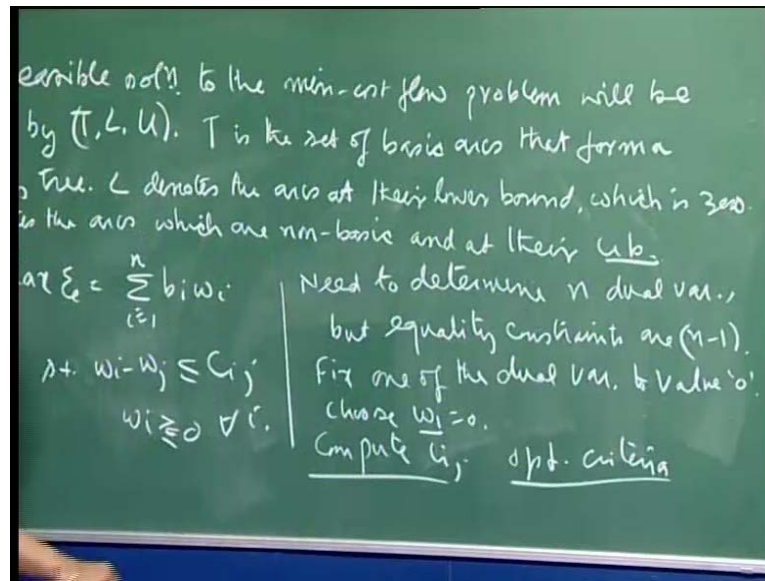 easible soln. to the min-cost flow problem will be
by (T, L, U). T is the set of basic arcs that form a
tree. L denotes the arcs at their lower bound, which is zero.
is the arcs which are non-basic and at their u.b.
ax ξ = n∑i=1 bi wi
s.t. wi - wj ≤ Cij
wi ≷ 0 ∀ i.
Need to determine n dual var.,
but equality constraints are (n-1).
Fix one of the dual var. to value '0'.
choose w1 = 0.
Compute c̄ij, opt. criteria